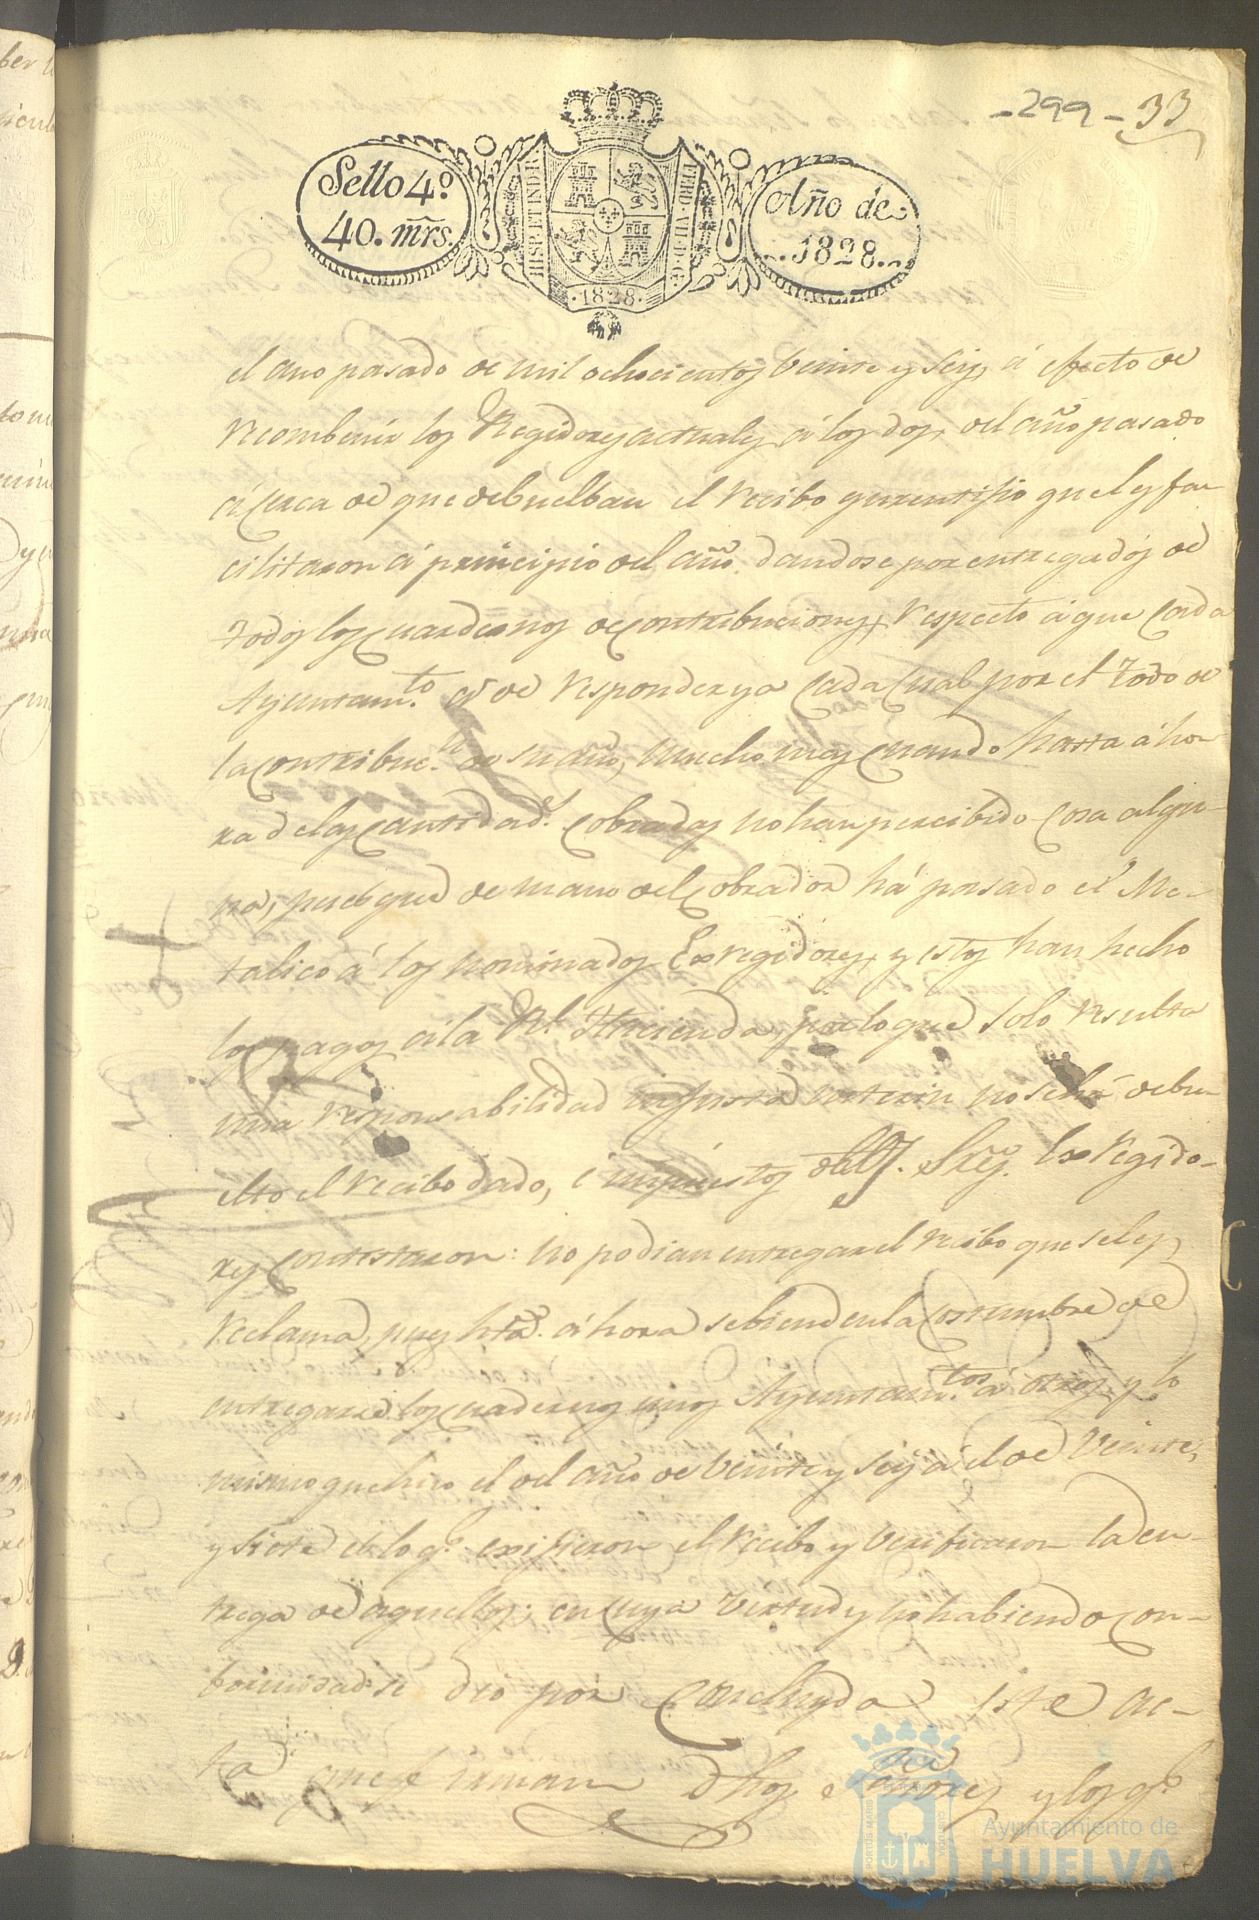 -299- 33
Sello 4º
40. mrs.
HISP. ET IND. R.
FERD. VII. D. G.
1828.
Año de
1828.
el año pasado de mil ochocientos Veinte y seis, á efecto de
recombenir los Regidores actuales á los dos, del año pasado
á cerca de que debuelban el recibo que les fa
cilitaron á principio del año dandose por entregados de
todos los cuadernos de contribuciones, respecto á que cada
Ayuntamto. de responder ya cada cual por el todo de
la contribuc.n de su año, mucho mas cuando hasta áho
ra delas cantidads. cobradas no han percibido cosa algu-
na, pues que de mano del Cobrador há pasado el Me-
talico á los nominados Exregidores, y estos han hecho
los pagos ála Rl. Hacienda, por lo que solo resulta
una responsabilidad injusta interin no se há debu-
elto el recibo dado, é impuestos Sres. Exregido-
res contestaron: no podian entregar el recibo que seles
reclama, pues hta. áhora sebiendo en la costumbre de
entregarse los cuadernos unos Ayuntamtos. á otros, y lo
mismo que hizo el del año de Veinte y seis á el de Veinte,
y siete de lo q.e exijieron el recibo y Verificaron la en-
trega de aquellos; en cuya Virtud y no habiendo con-
formidad se dio por concluyda este ac-
ta que firman dhos señores y los q.e
Ayuntamiento de
HUELVA